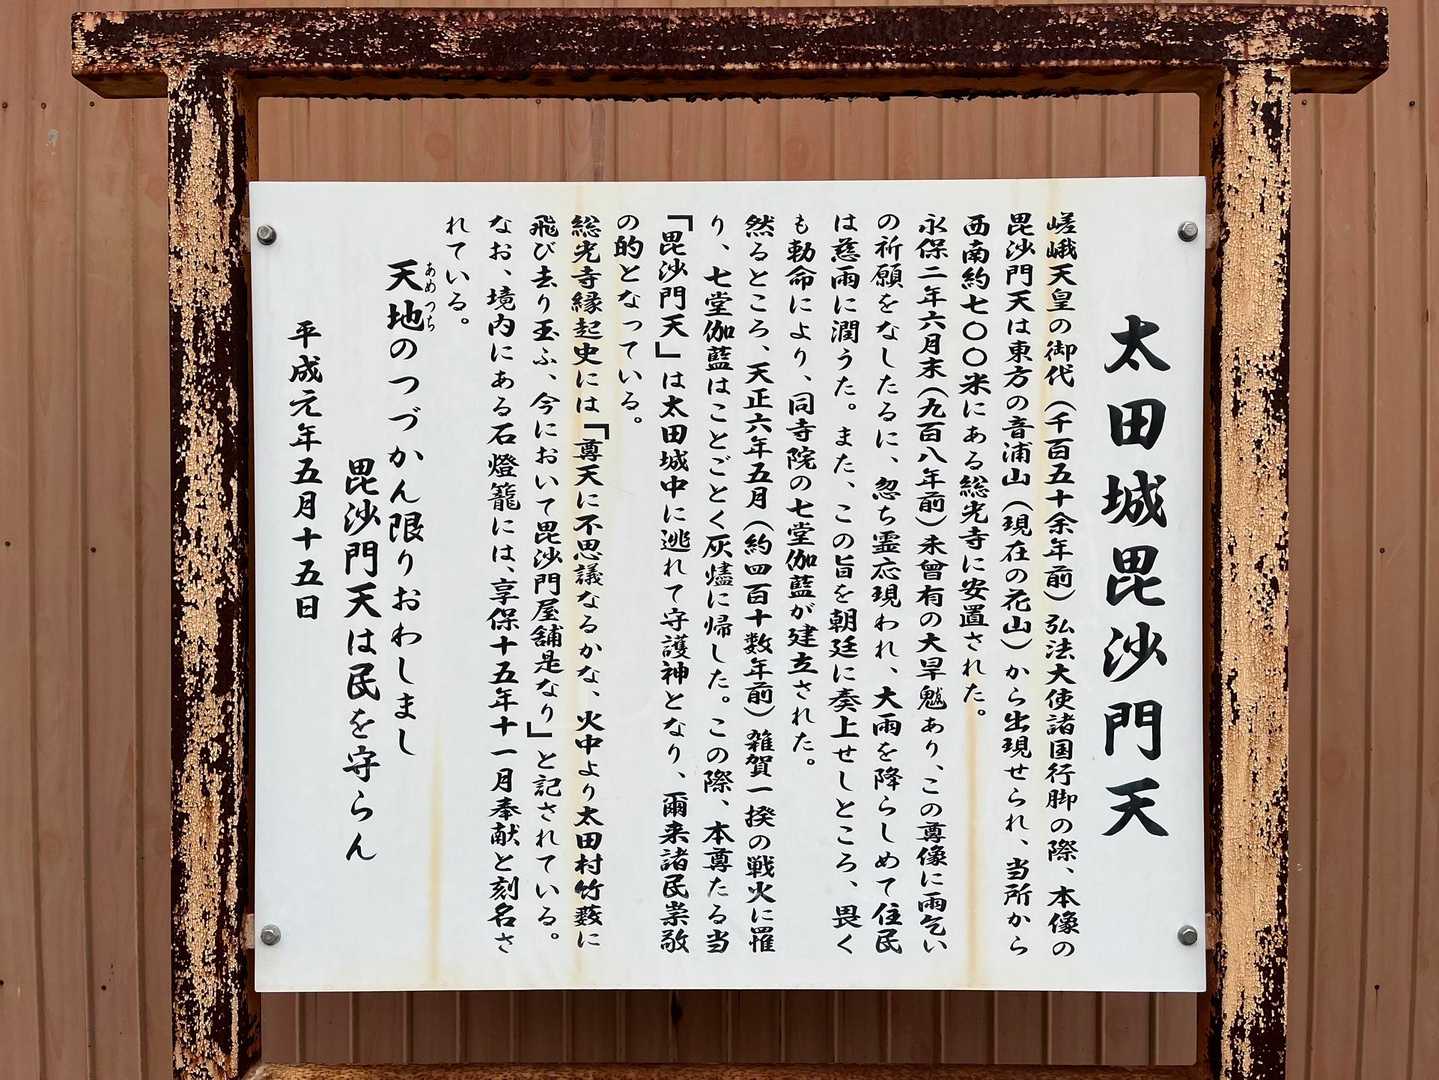 太田城毘沙門天
嵯峨天皇の御代（千百五十余年前）弘法大使諸国行脚の際、本像の
毘沙門天は東方の音浦山（現在の花山）から出現せられ、当所から
西南約七〇〇米にある総光寺に安置された。
永保二年六月末（九百八年前）未曾有の大旱魃あり、この尊像に雨乞い
の祈願をなしたるに、忽ち霊応現われ、大雨を降らしめて住民
は慈雨に潤うた。また、この旨を朝廷に奏上せしところ、畏く
も勅命により、同寺院の七堂伽藍が建立された。
然るところ、天正六年五月（約四百十数年前）雑賀一揆の戦火に罹
り、七堂伽藍はことごとく灰燼に帰した。この際、本尊たる当
「毘沙門天」は太田城中に逃れて守護神となり、爾来諸民崇敬
の的となっている。
総光寺縁起史には「尊天に不思議なるかな、火中より太田村竹薮に
飛び去り玉ふ、今において毘沙門屋舗是なり」と記されている。
なお、境内にある石燈籠には、享保十五年十一月奉献と刻名さ
れている。
天地のつづかん限りおわしまし
あめつち
毘沙門天は民を守らん
平成元年五月十五日